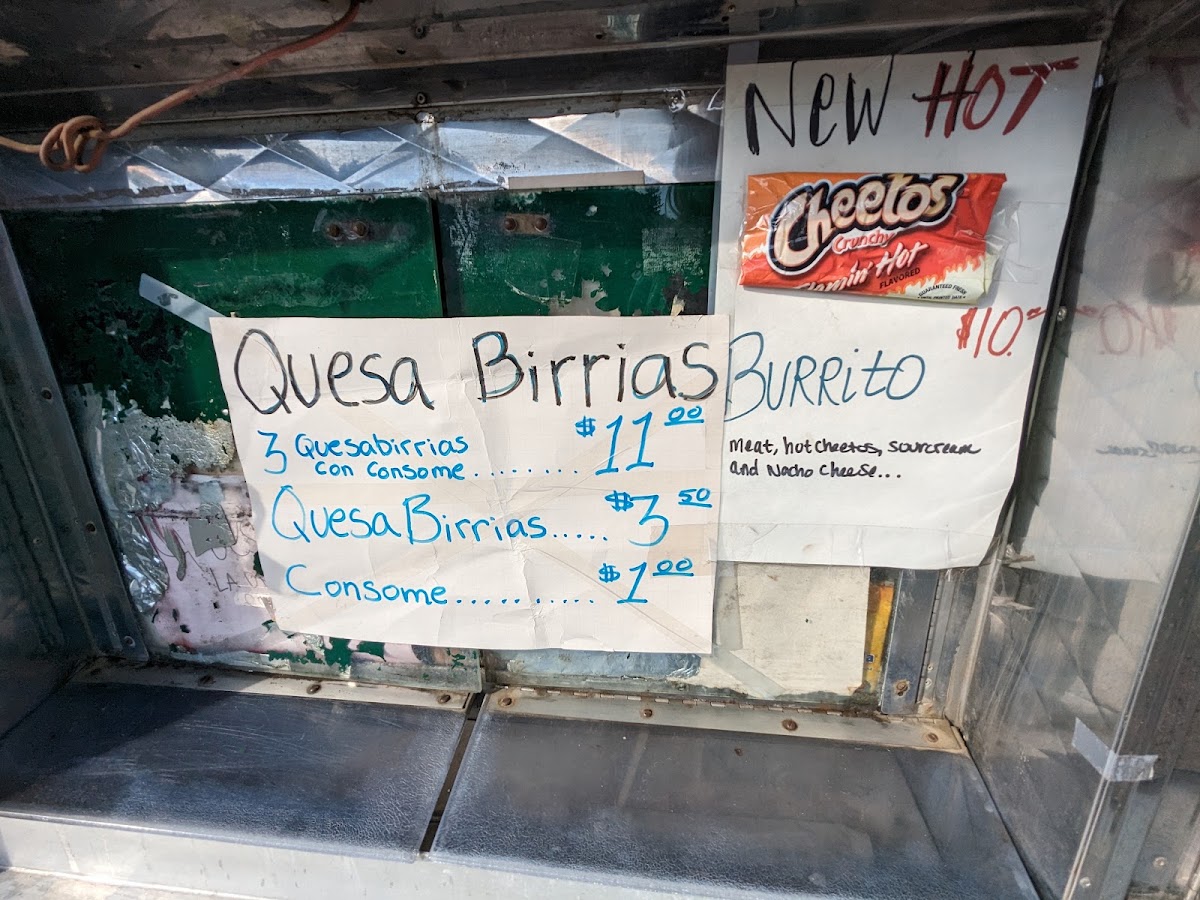 Quesa Birrias
3 Quesabirrias
con Consome......... $11.00
QuesaBirrias..... $3.50
Consome........... $1.00
New HOT
Cheetos
Crunchy
Flamin' Hot
FLAVORED
GUARANTEED FRESH
$10.
BURRitO
Meat, hot cheetos, sourcream
and Nacho cheese...